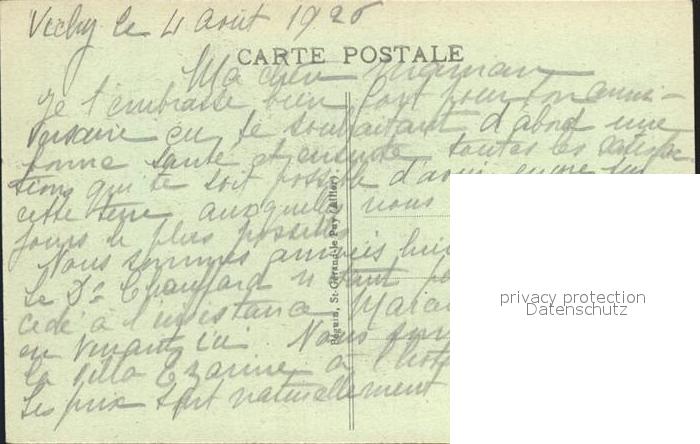 Vichy le 4 août 1926
CARTE POSTALE
Ma chère maman
Je t'embrasse bien fort pour ton anni-
versaire en te souhaitant d'abord une
bonne santé et ensuite toutes les satisfac
tions qui te soit possible d'avoir encore sur
cette terre auxquelles nous
jours le plus possible
Nous sommes arrivés hier
Le Dr Chauffard n'étant pas
cédé à l'insistance
en venant ici Nous sommes
la villa à l'hôtel
Les prix sont naturellement
Péguin, St-Gérand-le-Puy (Allier)
privacy protection
Datenschutz